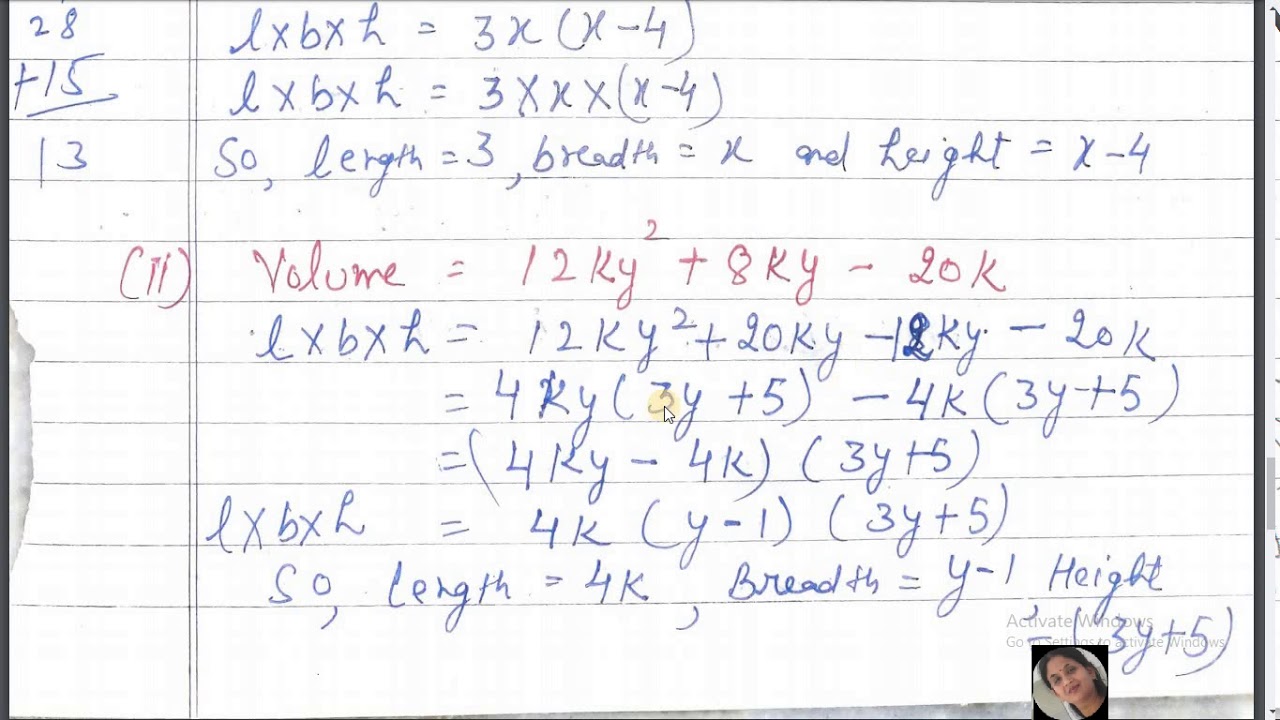 28
l×b×h = 3x(x-4)
+15
l×b×h = 3×x×(x-4)
13
So, length = 3, breadth = x and height = x-4
(ii) Volume = 12Ky² + 8Ky - 20K
l×b×h = 12Ky² + 20Ky - 12Ky - 20K
= 4Ky(3y+5) - 4K(3y+5)
= (4Ky - 4K) (3y+5)
l×b×h = 4K (y-1) (3y+5)
So, length = 4K, Breadth = y-1 Height
= (3y+5)
Activate Windows
Go to Settings to activate Windows.